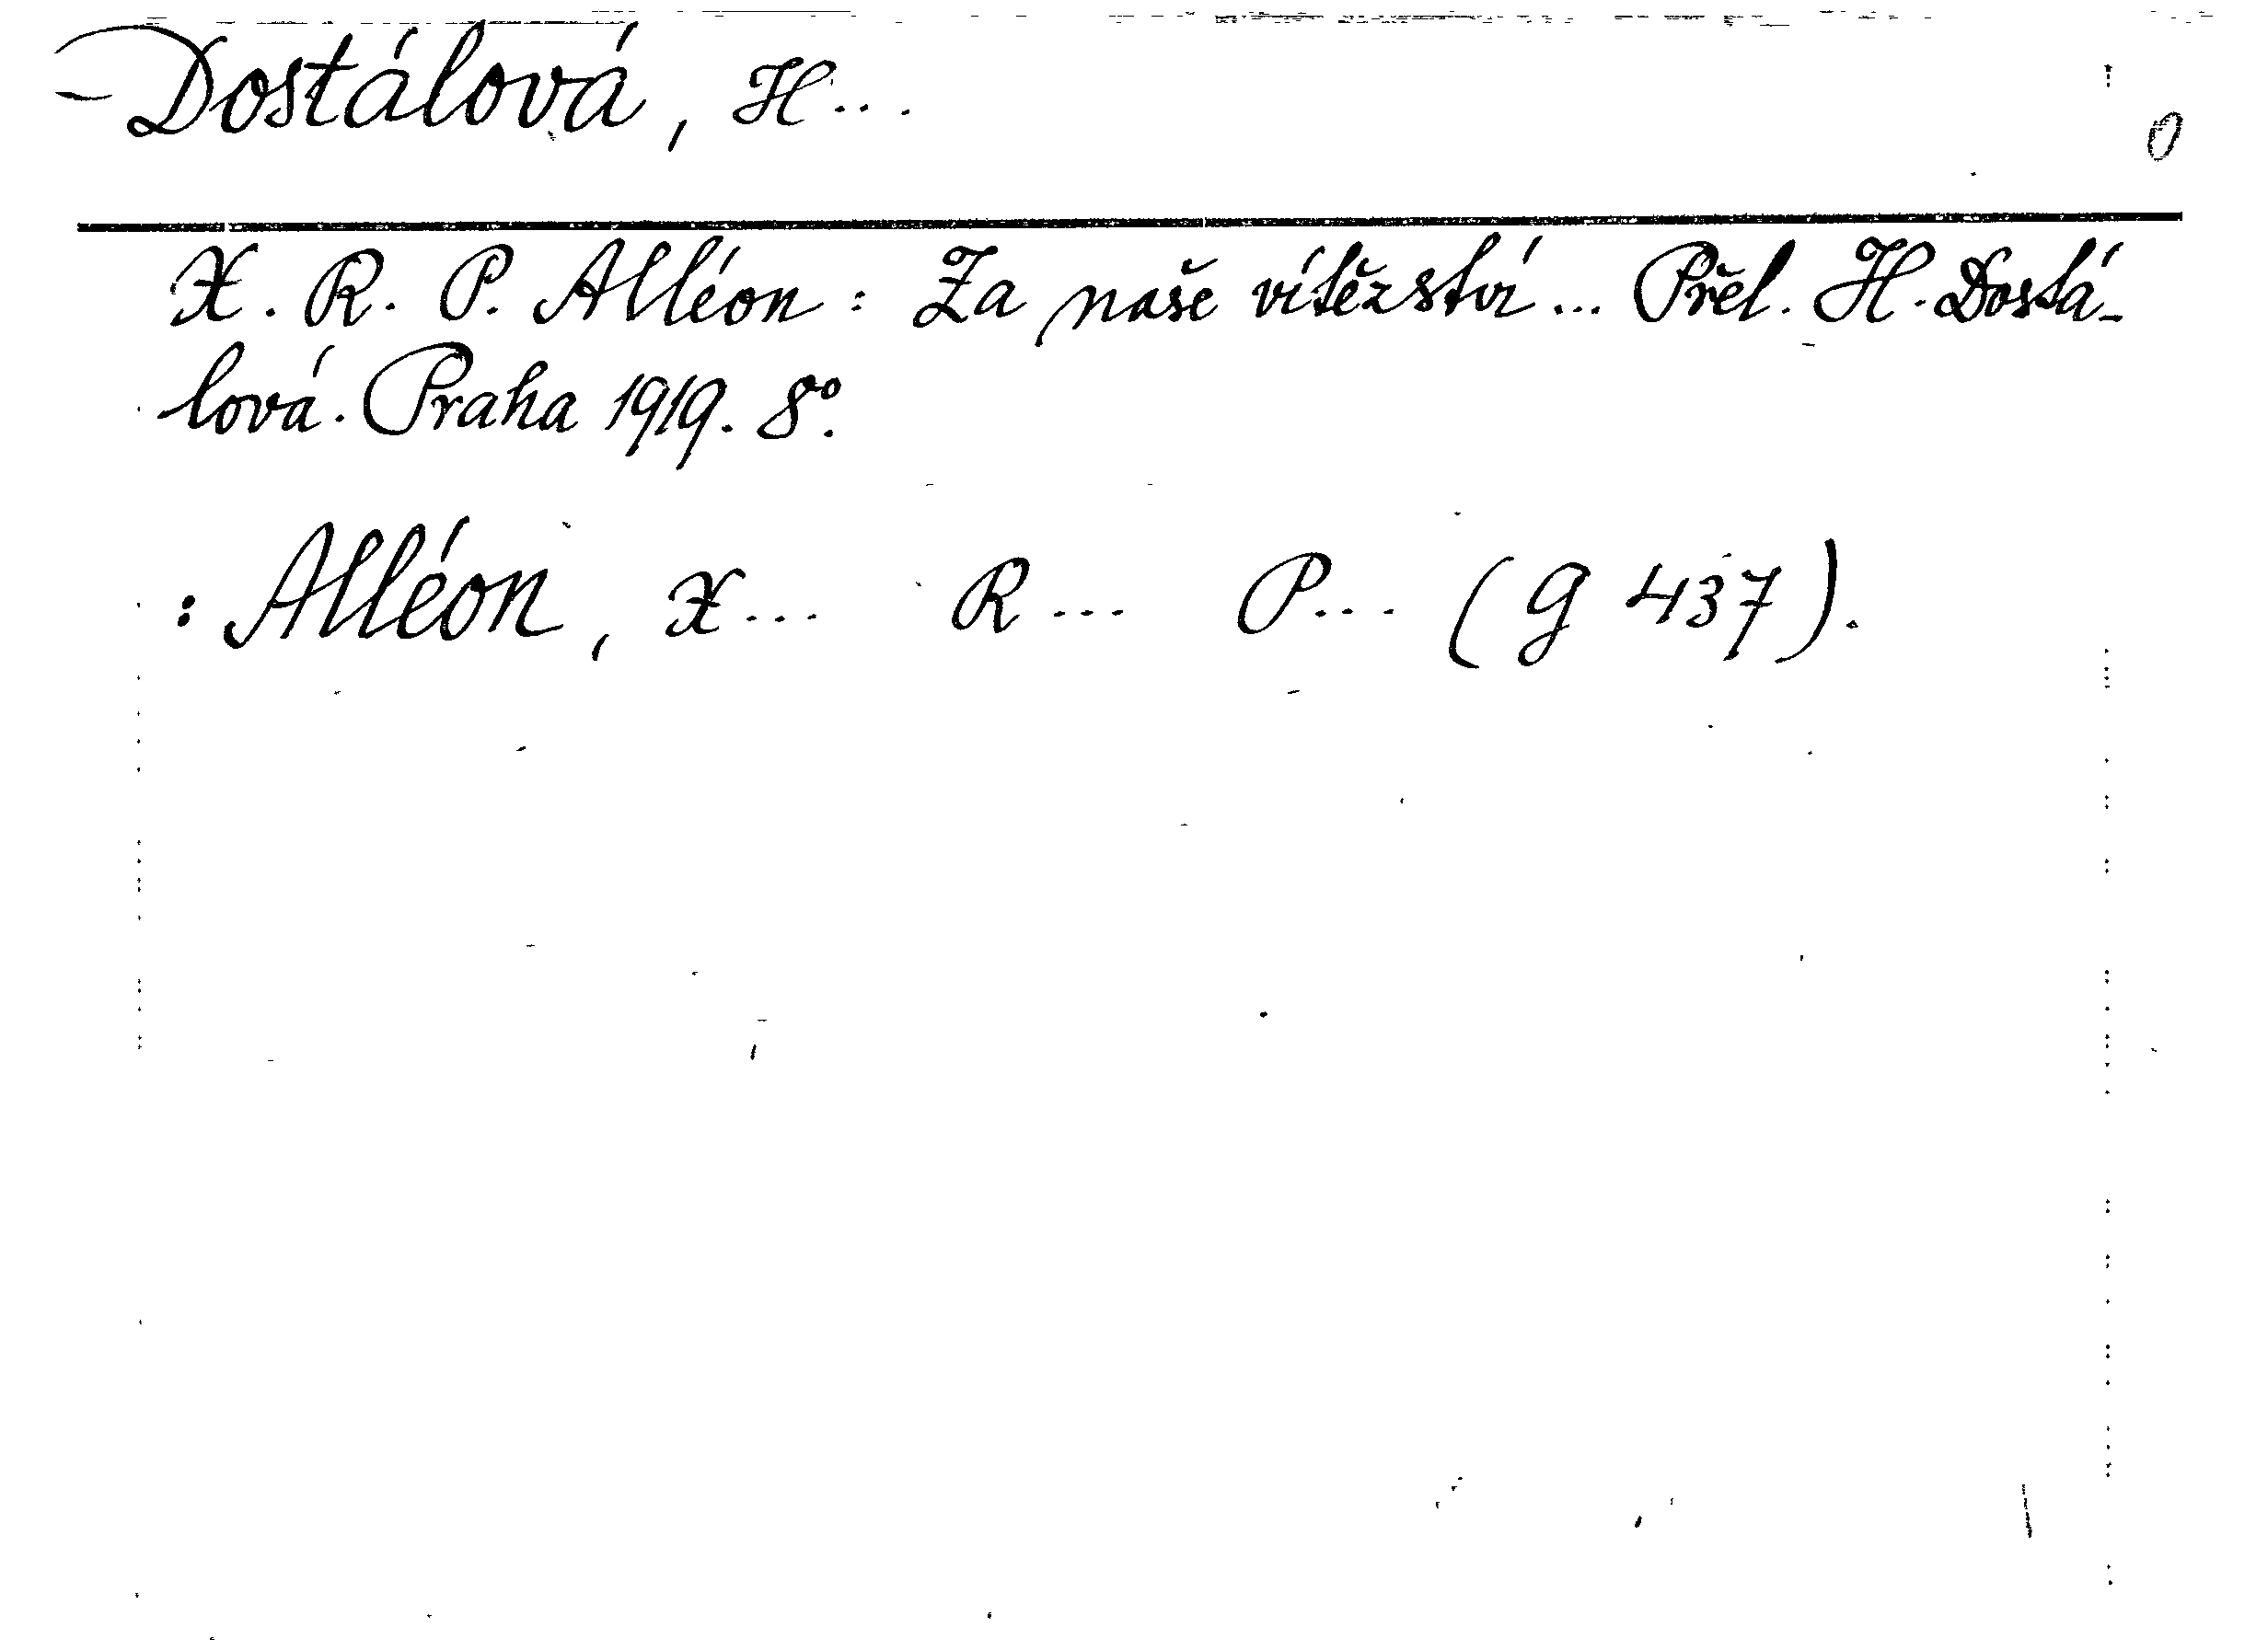 Dostálová, H...
0
X. R. P. Alléon: Za naše vítězství... Přel. H. Dostá-
lová. Praha 1919. 8°.
: Alléon, X... R... P... (G 437).